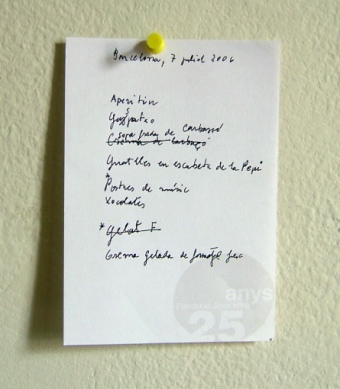 Barcelona, 7 juliol 2006
Aperitiu
Gaspatxo
sopa freda de carbassó
Crema de carbassó
Guatlles en escabetx de la Pepi
* Postres de músic
Xocolates
* Gelat F
Crema gelada de formatge
anys
25